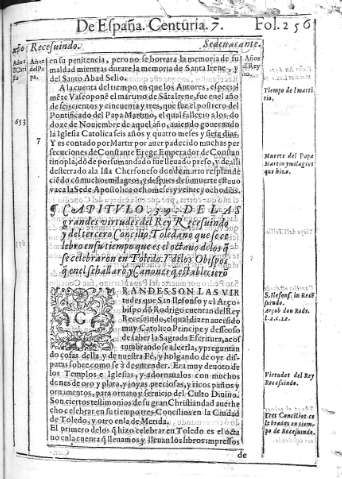 De España. Centuria. 7.
Fol. 256
Año Recesuindo.
Sedenacante.
en su penitencia, pero no se borrara la memoria de su
maldad mientras durare la memoria de Santa Irene, y
del Santo Abad Selio.
A la cuenta del tiempo en que los Autores, especial
mēte Vaseo pone el marty rio de Sāta Irene, fue en el año
de seiscientos y cincuenta y tres, que fue el postrero del
Pontificado del Papa Martino, el qual fallecio a los
doze de Nouiembre de aquel año, auiendo gouernado
la Iglesia Catolica seis años y quatro meses y siete dias.
Y es contado por Martir por auer padecido muchas per
secuciones del Constante Erege Emperador de Constan
tinopla, dō de por su mandado fue lleuado preso, y de alli
desterrado a la Isla Chersoneso donde murio resplande
ciēdo cō muchos milagros, y despues de su muerte estuuo
vaca la Sede Apostolica ocho meses y veinte y ocho dias.
CAPITVLO. 39. DE LAS
grandes virtudes del Rey Recesuindo
y del tercero Concilio Toledano que se ce
lebro en su tiempo que es el octauo de los q̄
se celebraron en Toledo. Y de los Obispos
q̄ en el se hallarō y Canones q̄ establecierō
G
RANDES SON LAS VIR
tudes que San Ilefonso y el Arço
bispo dō Rodrigo cuentan del Rey
Recesuindo, el qual dizen auer sido
muy Catolico Principe y desseoso
de saber la Sagrada Escritura, acos
tumbrandose a leerla, y preguntan
do cosas della y de nuestra Fé, y holgando de oyr dis
putas sobre como se à de entender. Era muy deuoto de
los Templos e Iglesias, y adornaualos con muchos
dones de oro y plata, y joyas preciosas, y ricos paños y
ornamentos, para ornato y seruicio del Culto Diuino.
Son ciertos testimonios de su gran Christiandad auer he
cho celebrar en su tiempo tres Concilios en la Ciudad
de Toledo, y otro en la de Merida.
El primero delos q̄ hizo celebrar en Toledo es el octa
no en la cuenta q̄ lleuamos y lleuan los libros impressos
de
653
7
Tiempo de
Muerte del Papa
Martin
que hizo.
S. Ilefons. in Recē
suindo.
Arçob. don Rodr.
Virtudes del Rey
Recesuindo.
Tres Concilios ce
lebrados en tiem
po de Recesuindo.